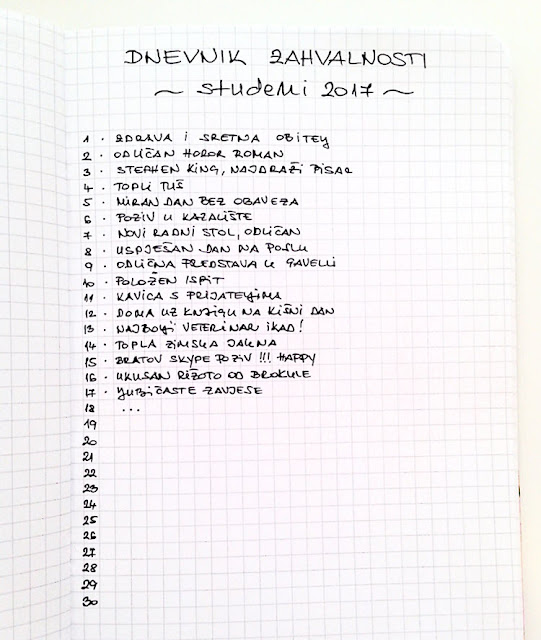 DNEVNIK ZAHVALNOSTI
~ studeni 2017 ~
1 · ZDRAVA I SRETNA OBITELJ
2 · ODLIČAN HOROR ROMAN
3 · STEPHEN KING, NAJDRAŽI PISAC
4 · TOPLI TUŠ
5 · MIRAN DAN BEZ OBAVEZA
6 · POZIV U KAZALIŠTE
7 · NOVI RADNI STOL, ODLIČAN
8 · USPJEŠAN DAN NA POSLU
9 · ODLIČNA PREDSTAVA U GAVELLI
10 · POLOŽEN ISPIT
11 · KAVICA S PRIJATELJIMA
12 · DOMA UZ KNJIGU NA KIŠNI DAN
13 · NAJBOLJI VETERINAR IKAD!
14 · TOPLA ZIMSKA JAKNA
15 · BRATOV SKYPE POZIV !!! HAPPY
16 · UKUSAN RIŽOTO OD BROKULE
17 · LJUBIČASTE ZAVJESE
18 ...
19
20
21
22
23
24
25
26
27
28
29
30